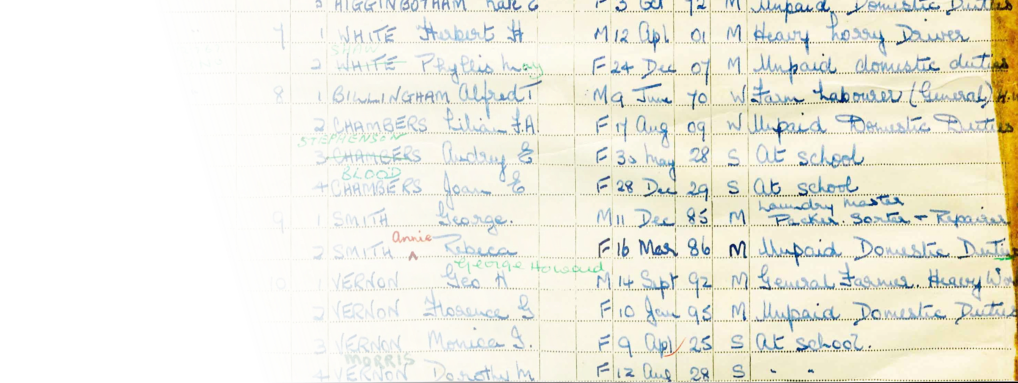 3 HIGGINBOTHAM F 3 Oct 72 M Unpaid Domestic Duties
7 1 WHITE Herbert H M 12 Apl 01 M Heavy Lorry Driver
2 WHITE Phyllis May F 24 Dec 07 M Unpaid domestic duties
8 1 BILLINGHAM Alfred T M 9 June 70 W Farm Labourer (General)
2 CHAMBERS Lilian F.A F 17 Aug 09 W Unpaid Domestic Duties
STEPHENSON
3 CHAMBERS Audry E F 30 May 28 S At school
BLOOD
4 CHAMBERS Joan E F 28 Dec 29 S At school
Laundry Master
9 1 SMITH George. M 11 Dec 85 M Packer. Sorter + Repairer
Annie
2 SMITH Rebeca F 16 Mar 86 M Unpaid Domestic Duties
George Howard
10 1 VERNON Geo H M 14 Sept 92 M General Farmer. Heavy
2 VERNON Florence G F 10 Jan 95 M Unpaid Domestic Duties
3 VERNON Monica J. F 9 Apl 25 S At school.
MORRIS
4 VERNON Dorothy M F 12 Aug 28 S " "